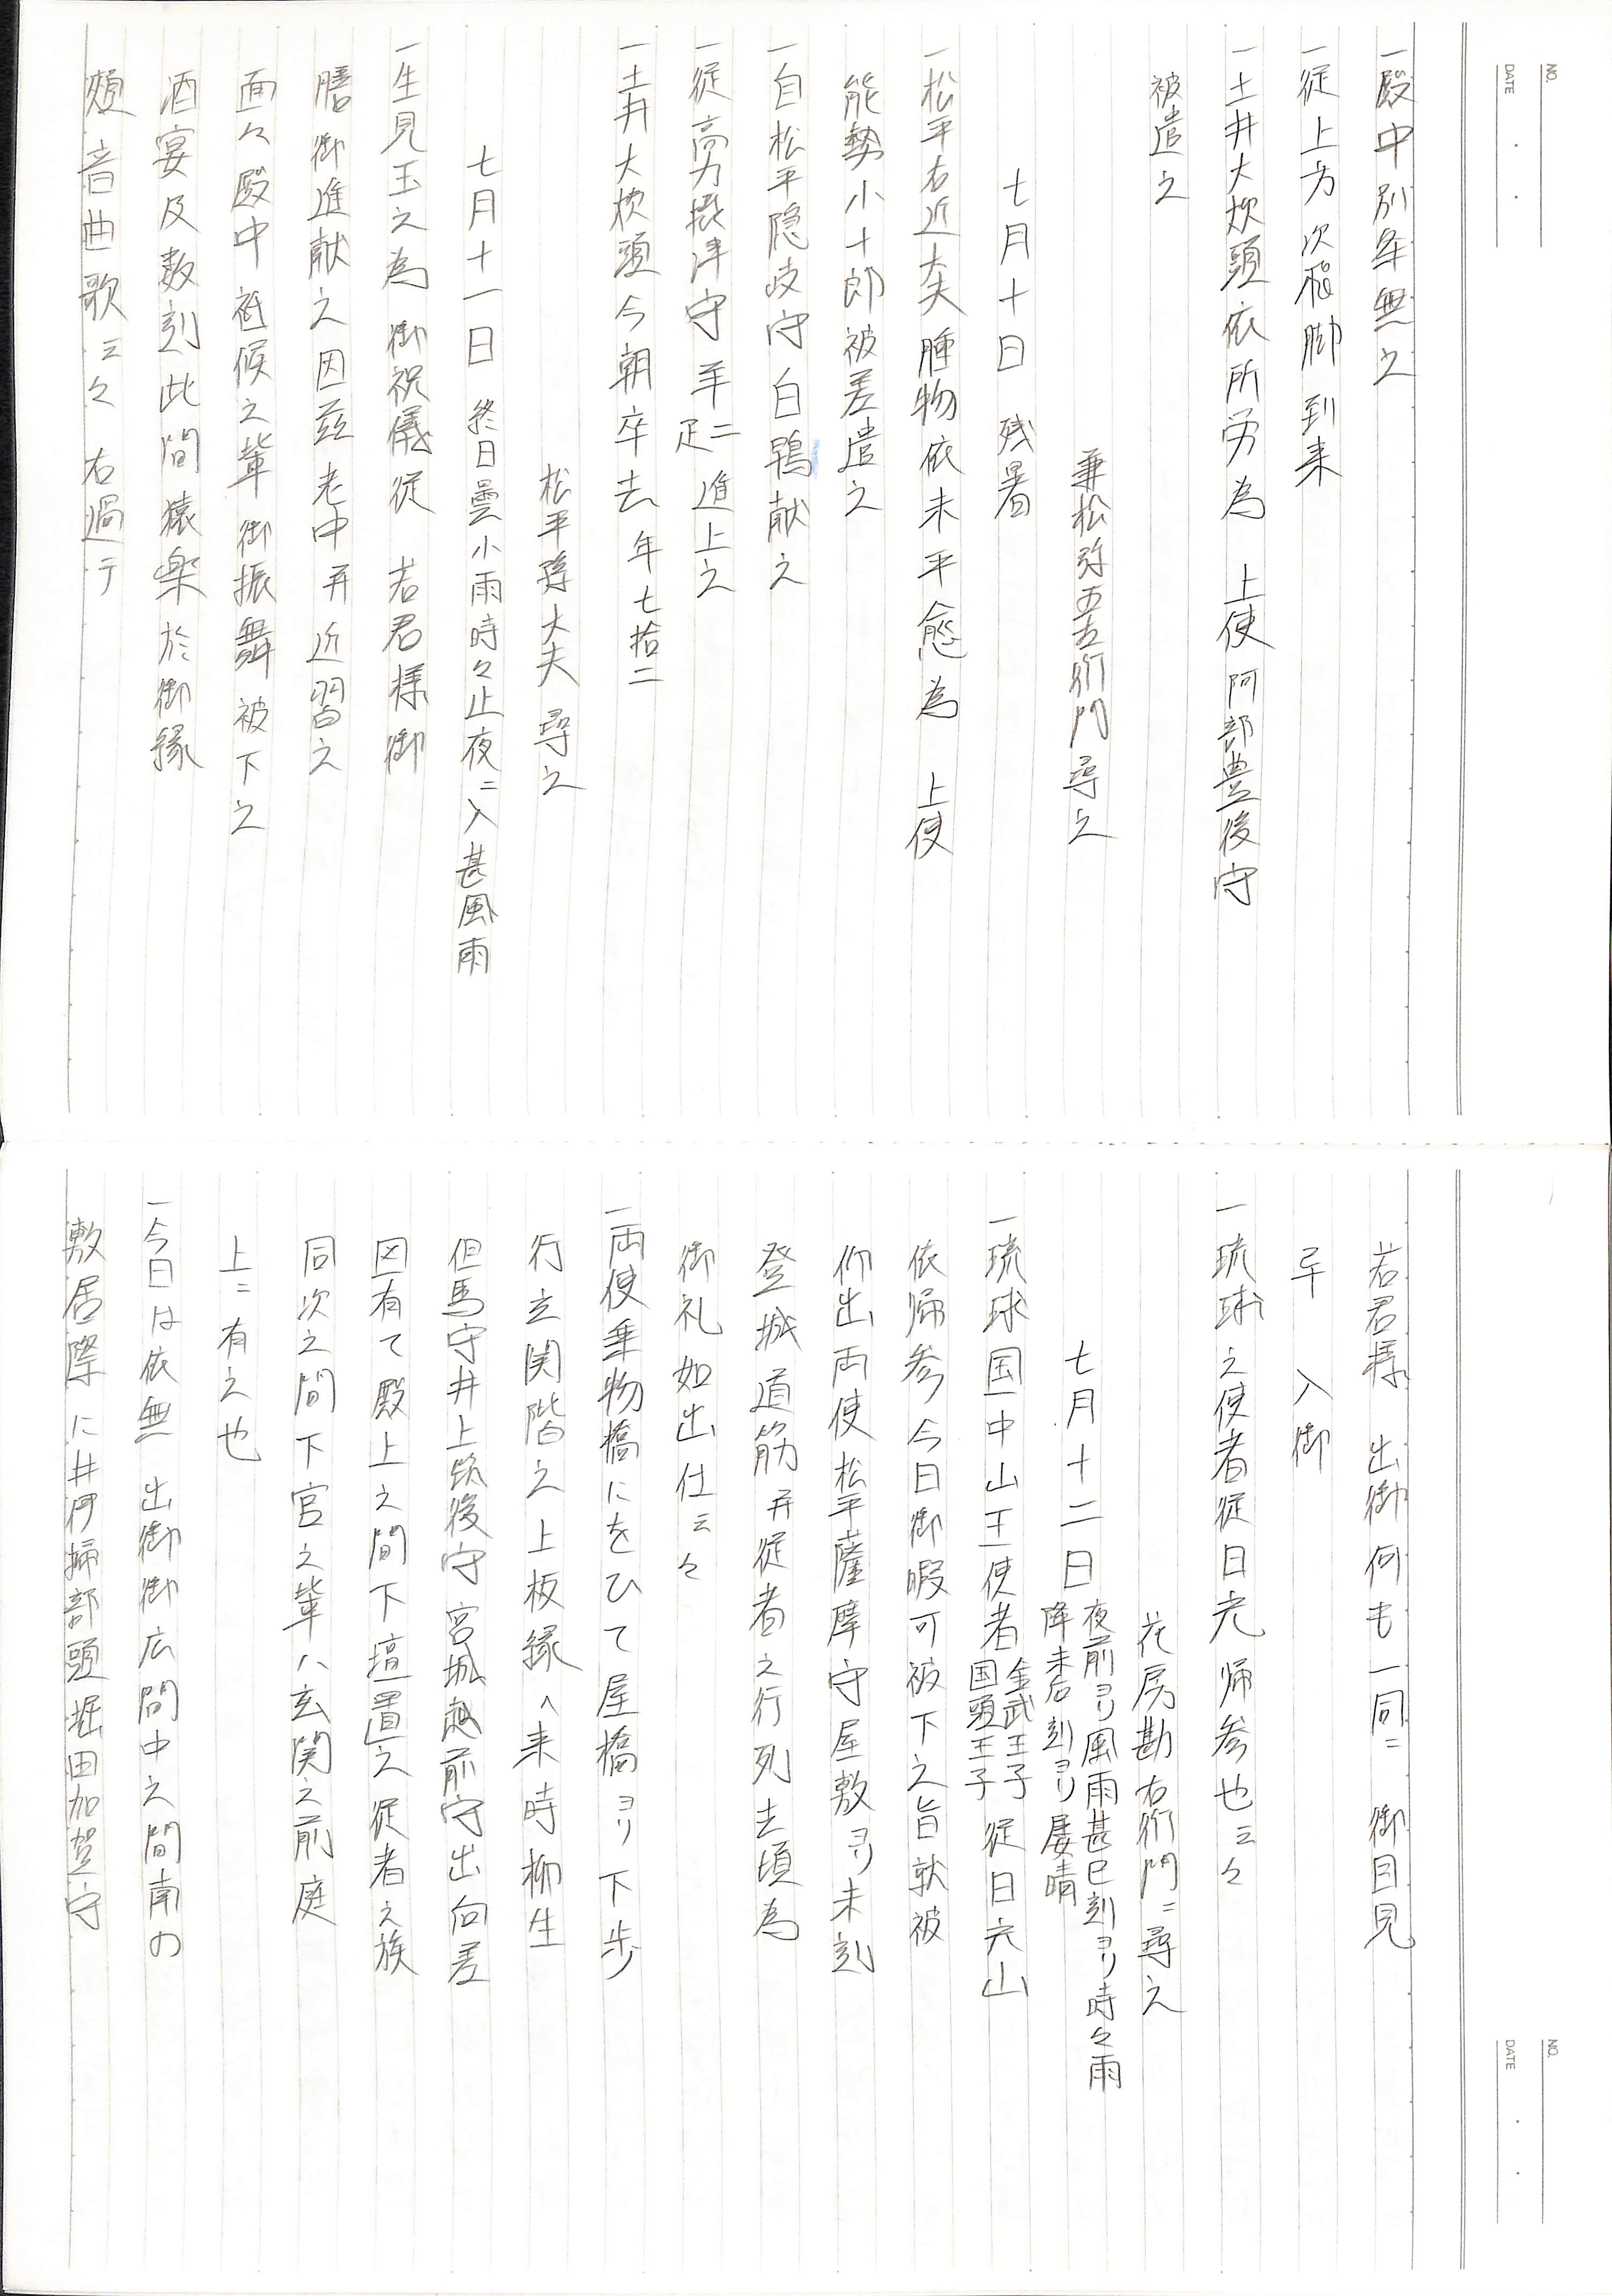 NO.
DATE
一殿中別条無之
一従上方次飛脚到来
一土井大炊頭依所労為 上使 阿部豊後守
被遣之
兼松弥五左衛門尋之
七月十日 残暑
一松平右近大夫腫物依未平愈為 上使
能勢小十郎被差遣之
一白松平隠岐守白鴨献之
一従高力摂津守羊二疋進上之
一土井大炊頭今朝卒去 年七拾二
松平隼大夫 尋之
七月十一日 終日曇小雨時々止夜ニ入甚風雨
一生見玉之為 御祝儀従 若君様御
膳御進献之因茲老中并近習之
面々殿中祗候之輩御振舞被下之
酒宴及数刻此間猿楽於御縁
頬音曲歌云々 右過テ
NO.
DATE
若君様 出御何も一同ニ 御目見
早 入御
一琉球之使者従日光帰参也云々
花房勘右衛門ニ尋之
七月十二日 夜前ヨリ風雨甚巳刻ヨリ時々雨
降未后刻ヨリ屡晴
一琉球国中山王使者 金武王子 国頭王子 従日光山
依帰参今日御暇可被下之旨就被
仰出両使松平薩摩守屋敷ヨリ未刻
登城道筋并従者之行列去頃為
御礼如出仕云々
一両使乗物橋にをひて屋橋ヨリ下歩
行玄関階之上板縁へ来時柳生
但馬守井上筑後守宮城越前守出向差
図有て殿上之間下壇置之従者之族
同次之間下官之輩ハ玄関之前庭
上ニ有之也
一今日は依無 出御御広間中之間南の
敷居際に井伊掃部頭堀田加賀守